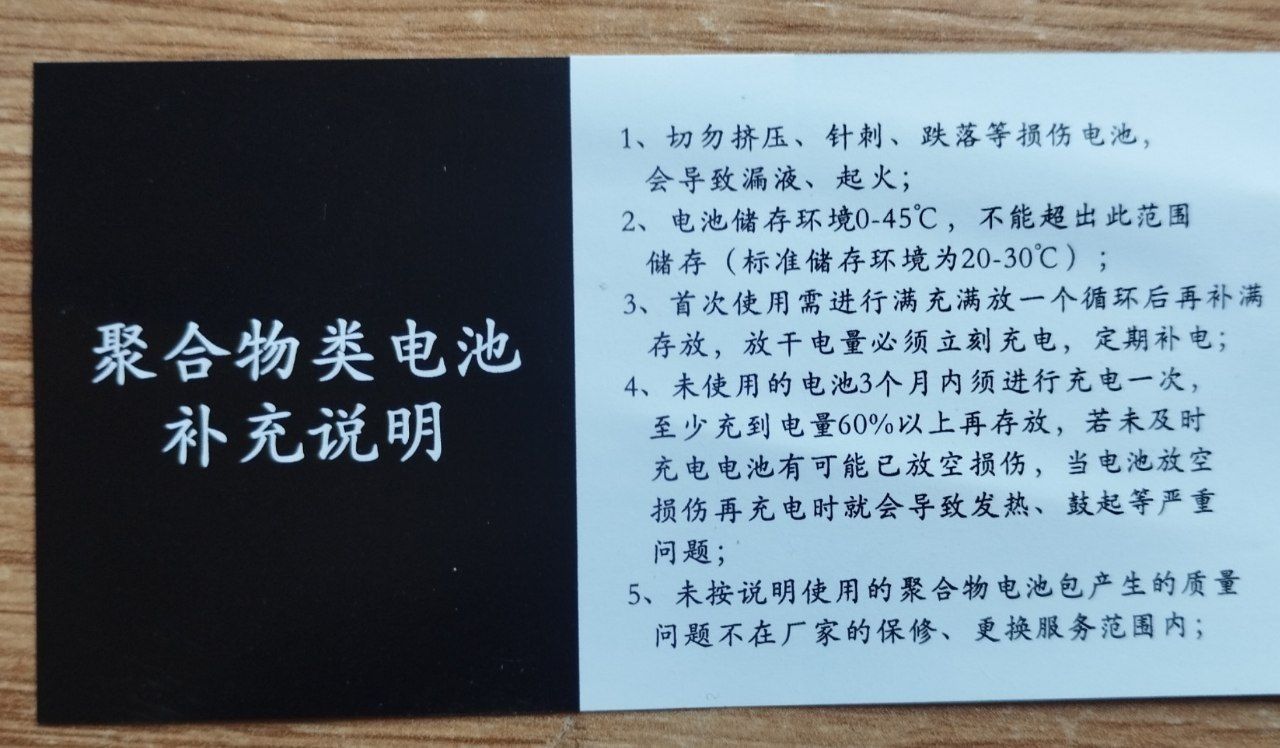 聚合物类电池
补充说明
1、切勿挤压、针刺、跌落等损伤电池，
会导致漏液、起火；
2、电池储存环境0-45℃，不能超出此范围
储存（标准储存环境为20-30℃）；
3、首次使用需进行满充满放一个循环后再补满
存放，放干电量必须立刻充电，定期补电；
4、未使用的电池3个月内须进行充电一次，
至少充到电量60%以上再存放，若未及时
充电电池有可能已放空损伤，当电池放空
损伤再充电时就会导致发热、鼓起等严重
问题；
5、未按说明使用的聚合物电池包产生的质量
问题不在厂家的保修、更换服务范围内；